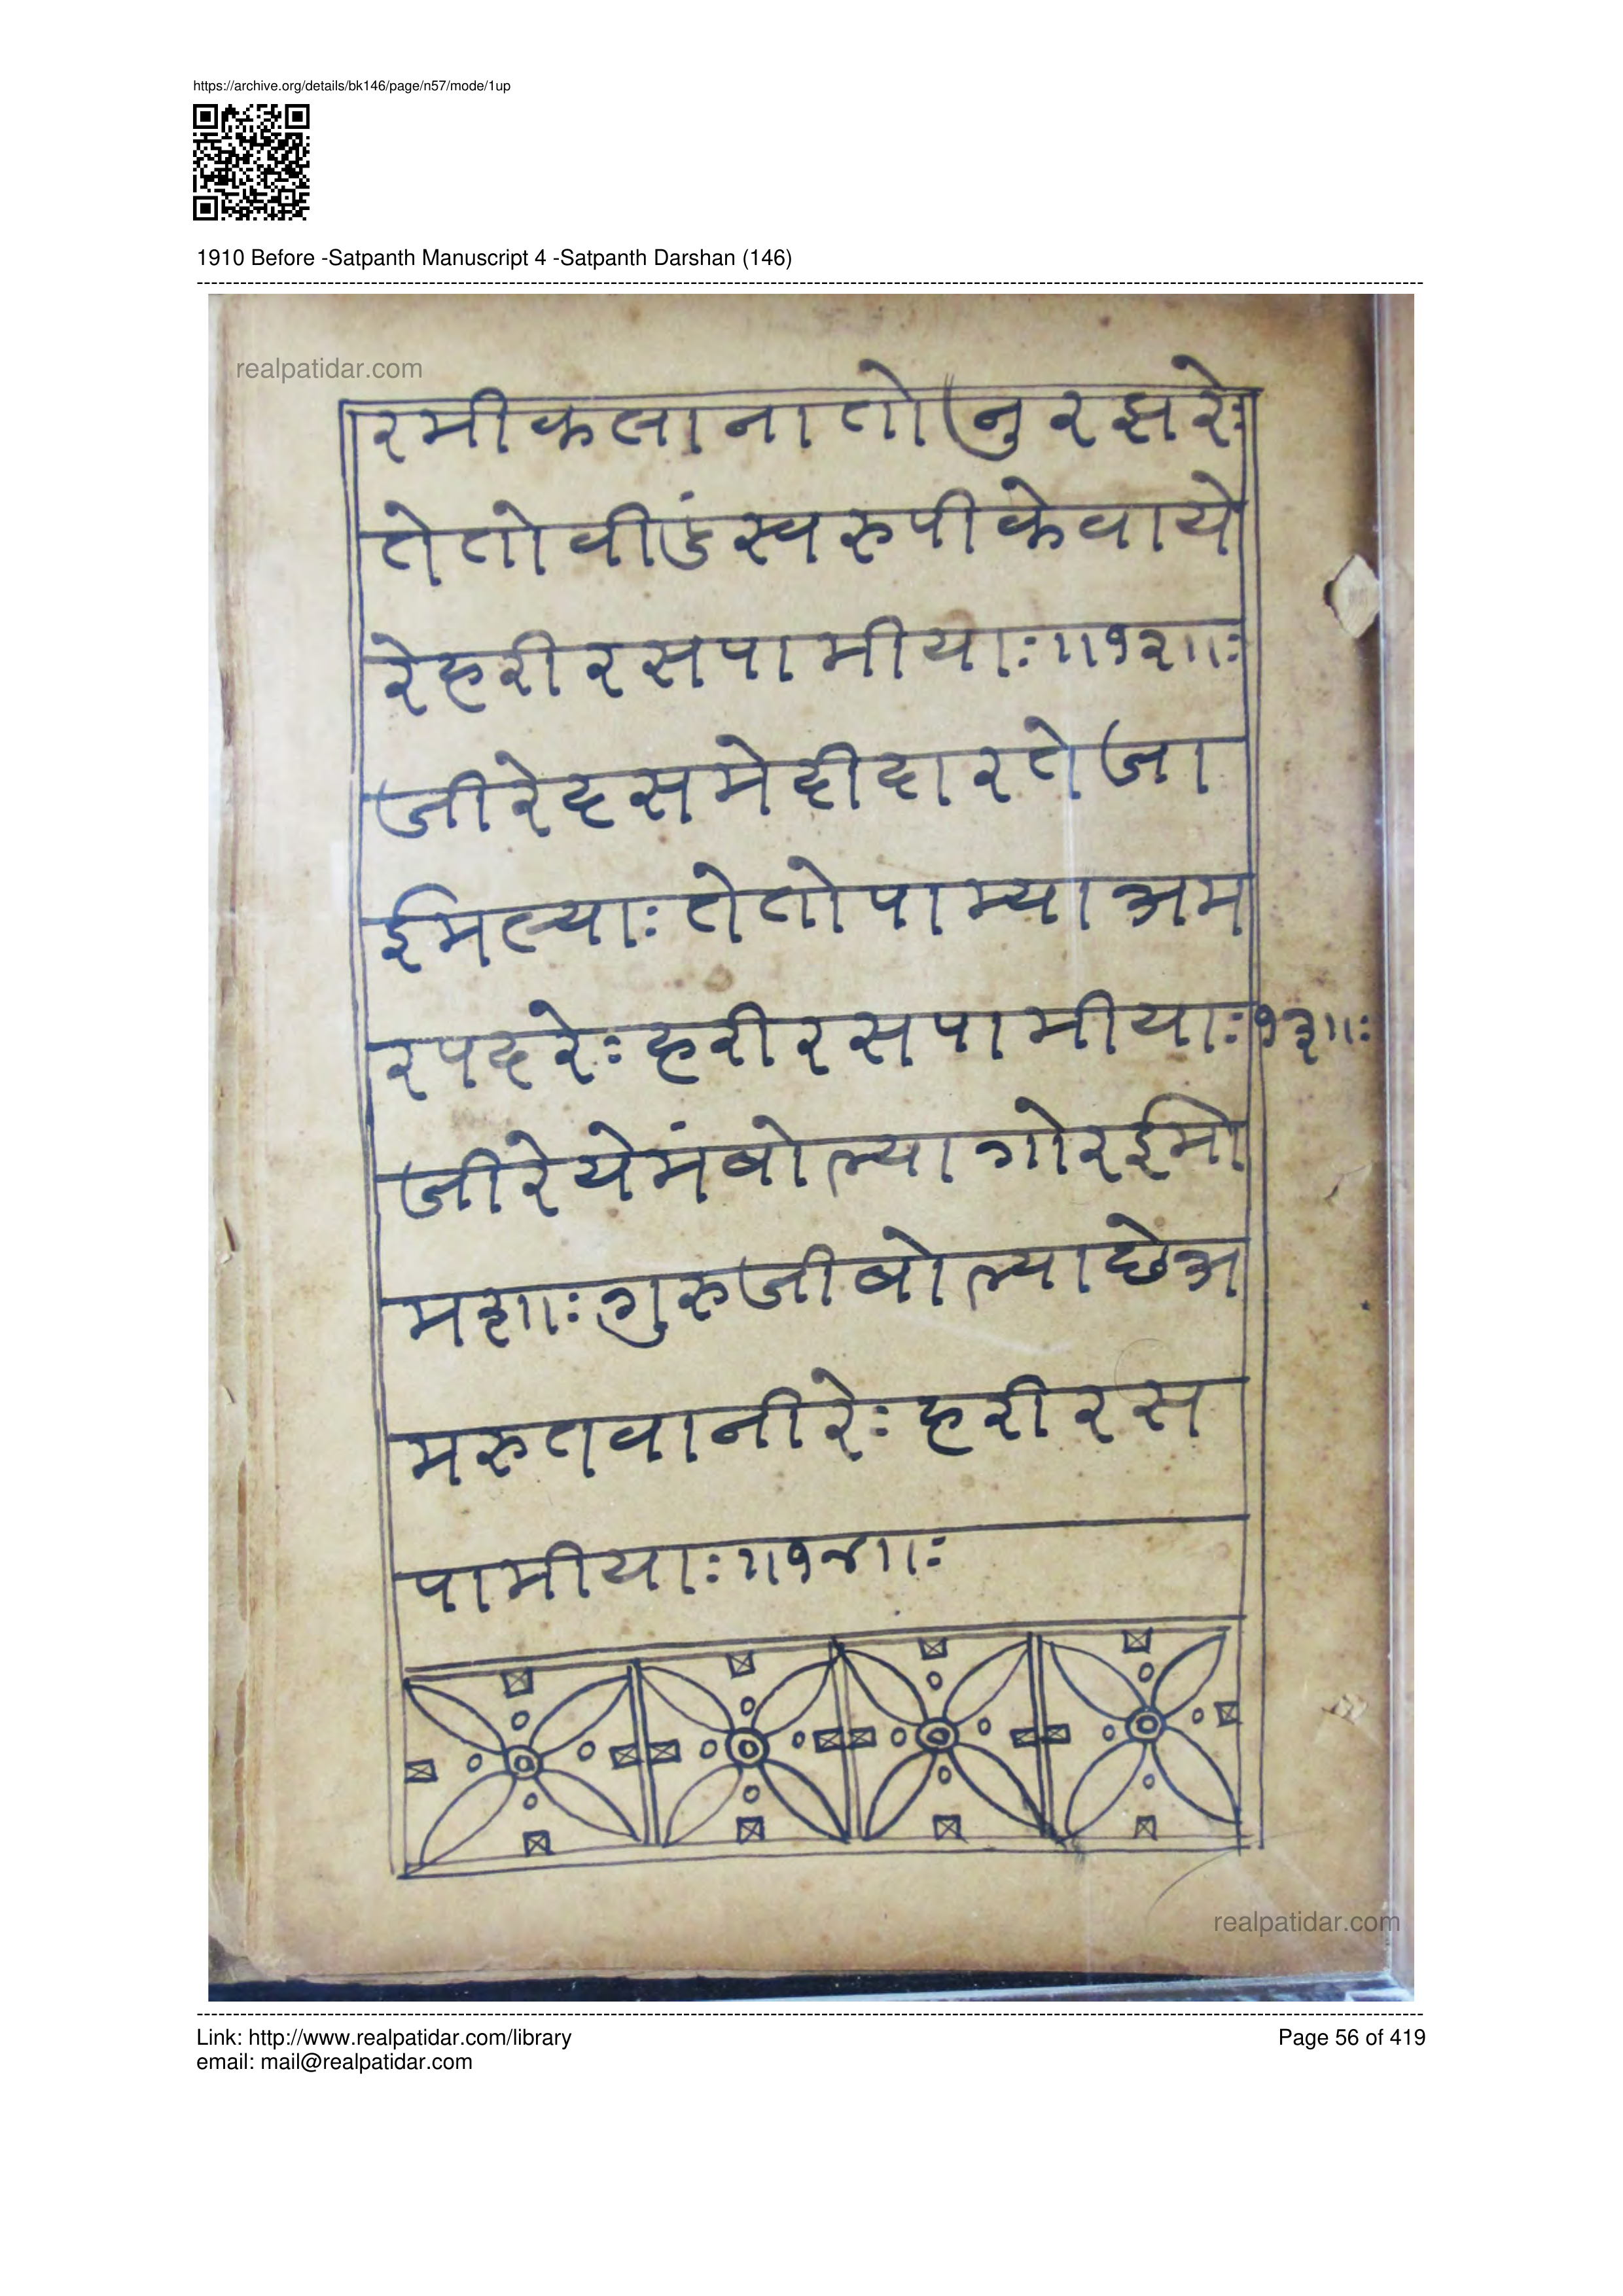 https://archive.org/details/bk146/page/n57/mode/1up
1910 Before -Satpanth Manuscript 4 -Satpanth Darshan (146)
realpatidar.com
रमीकलानातोनुरझरेः
तेतोवीडंस्वरुपीकेवाये
रेहरीरसपामीयाः॥१२॥ः
जीरेदसमेदीदारतेजा
ईमल्याःतेतोपाम्याअम
रपदरेःहरीरसपामीयाः१३॥ः
जीरेयेमंबोल्यागोरईमो
मशाःगुरुजीबोल्याछेअ
मरुतवानीरेःहरीरस
पामीयाः॥१४॥ः
realpatidar.com
Link: http://www.realpatidar.com/library
Page 56 of 419
email: mail@realpatidar.com